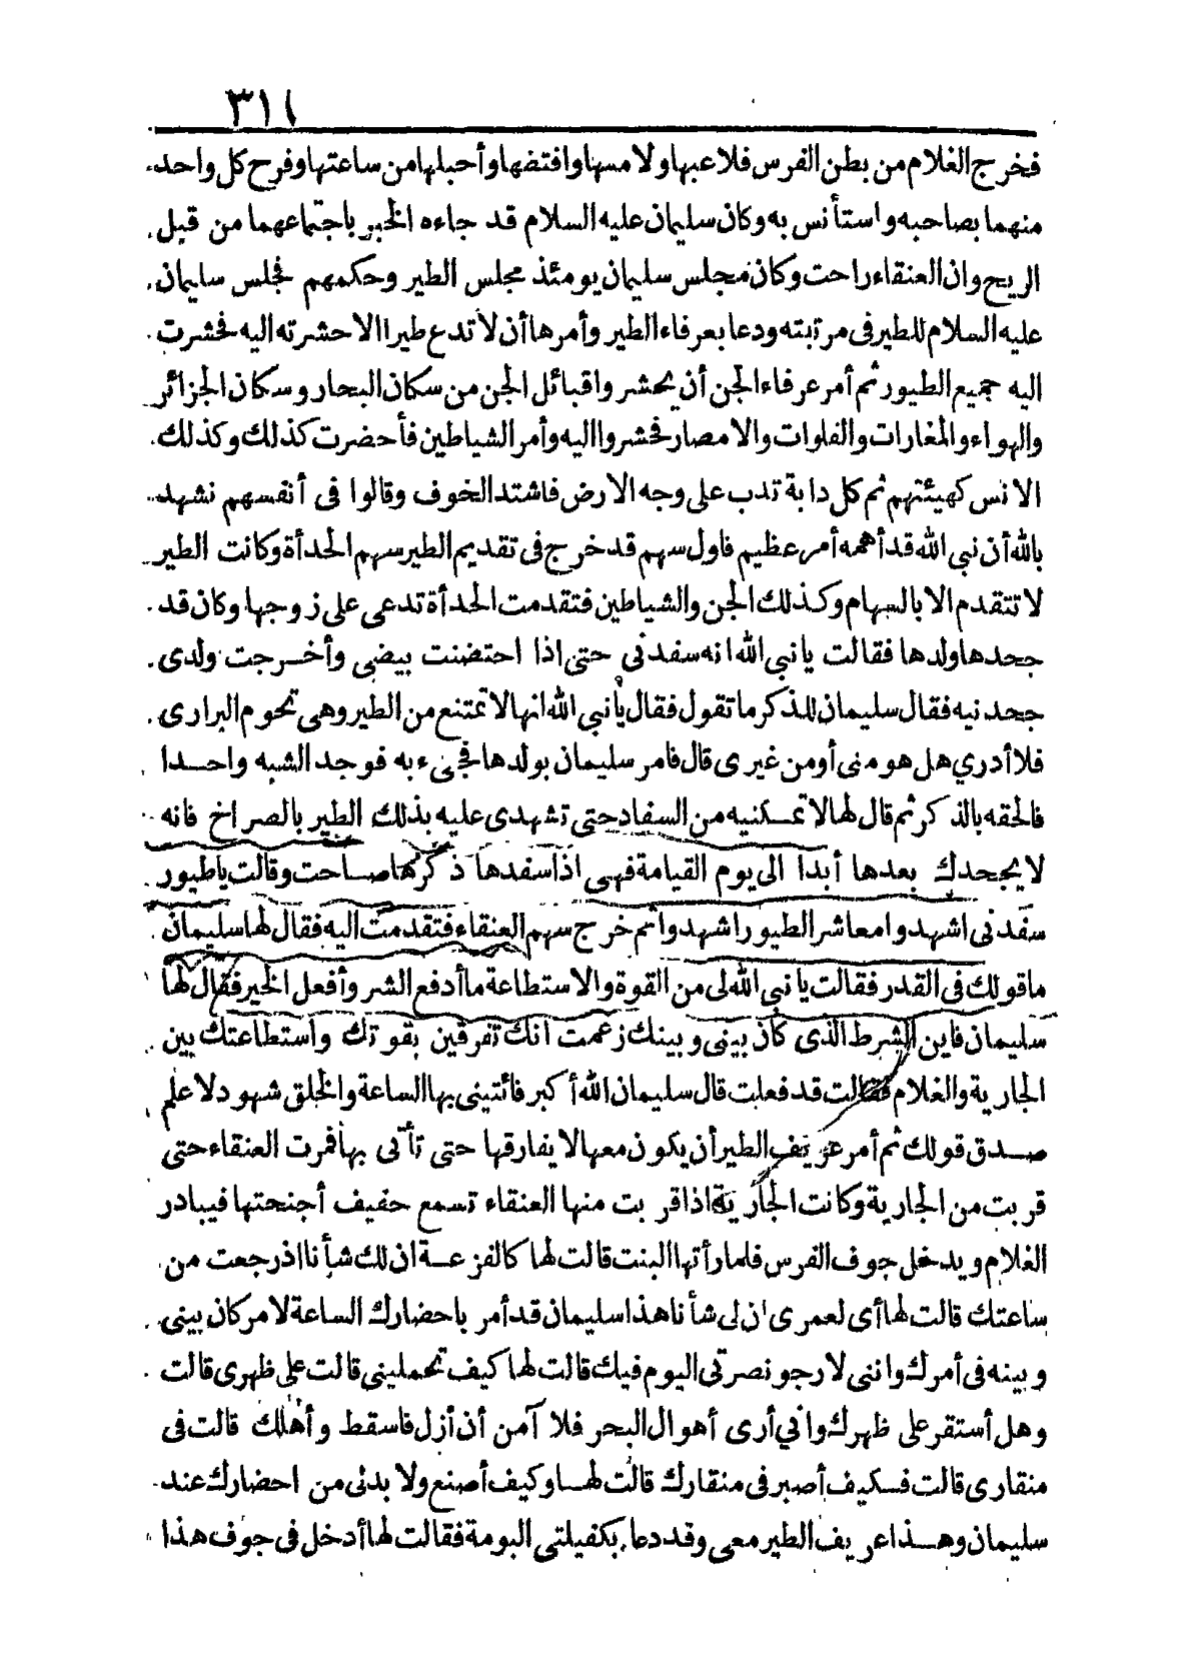 ٣١١
فخرج الغلام من بطن الفرس فلاعبها ولامسها وافتضها وأحبلها من ساعتها وفرح كل واحد
منهما بصاحبه واستأنس به وكان سليمان عليه السلام قد جاءه الخبر باجتماعهما من قبل
الريح وان العنقاء راحت وكان مجلس سليمان يومئذ مجلس الطير وحكمهم فجلس سليمان
عليه السلام للطير فى مرتبته ودعا بعرفاء الطير وأمرها أن لا تدع طيرا الا حشرته اليه فحشرت
اليه جميع الطيور ثم أمر عرفاء الجن أن يحشروا قبائل الجن من سكان البحار وسكان الجزائر
والهواء والمغارات والفلوات والامصار فحشروا اليه وأمر الشياطين فأحضرت كذلك وكذلك
الانس كهيئتهم ثم كل دابة تدب على وجه الارض فاشتد الخوف وقالوا فى أنفسهم نشهد
بالله أن نبي الله قد أهمه أمر عظيم فاول سهم قد خرج فى تقديم الطير سهم الحدأة وكانت الطير
لا تتقدم الا بالسهام وكذلك الجن والشياطين فتقدمت الحدأة تدعى على زوجها وكان قد
جحدها ولدها فقالت يا نبي الله انه سفدنى حتى اذا احتضنت بيضى وأخرجت ولدى
جحدنيه فقال سليمان للذكر ما تقول فقال يا نبي الله انها لا تمتنع من الطير وهى تحوم البرارى
فلا أدري هل هو منى أو من غيرى قال فامر سليمان بولدها فجىء به فوجد الشبه واحدا
فالحقه بالذكر ثم قال لها لا تمكنيه من السفاد حتى تشهدى عليه بذلك الطير بالصراخ فانه
لا يجحدك بعدها أبدا الى يوم القيامة فهى اذا سفدها ذكرها صاحت وقالت يا طيور
سفدنى اشهدوا معاشر الطيور اشهدوا ثم خرج سهم العنقاء فتقدمت اليه فقال لها سليمان
ما قولك فى القدر فقالت يا نبي الله لى من القوة والاستطاعة ما أدفع الشر وأفعل الخير فقال لها
سليمان فاين الشرط الذى كان بينى وبينك زعمت انك تفرقين بقوتك واستطاعتك بين
الجارية والغلام فقالت قد فعلت قال سليمان الله أكبر فائتينى بها الساعة والخلق شهود لا علم
صدق قولك ثم أمر عريف الطير أن يكون معها لا يفارقها حتى تأتى بها فمرت العنقاء حتى
قربت من الجارية وكانت الجارية اذا قربت منها العنقاء تسمع حفيف أجنحتها فيبادر
الغلام ويدخل جوف الفرس فلما رأتها البنت قالت لها كالفزعة ان لك شأنا اذ رجعت من
ساعتك قالت لها أى لعمرى ان لى شأنا هذا سليمان قد أمر باحضارك الساعة لامر كان بينى
وبينه فى أمرك واننى لارجو نصرتى اليوم فيك قالت لها كيف تحملينى قالت على ظهرى قالت
وهل أستقر على ظهرك وانى أرى أهوال البحر فلا آمن أن أزل فاسقط وأهلك قالت فى
منقارى قالت فكيف أصبر فى منقارك قالت لها وكيف أصنع ولا بد لى من احضارك عند
سليمان وهذا عريف الطير معى وقد دعا بكفيلتى البومة فقالت لها أدخل فى جوف هذا